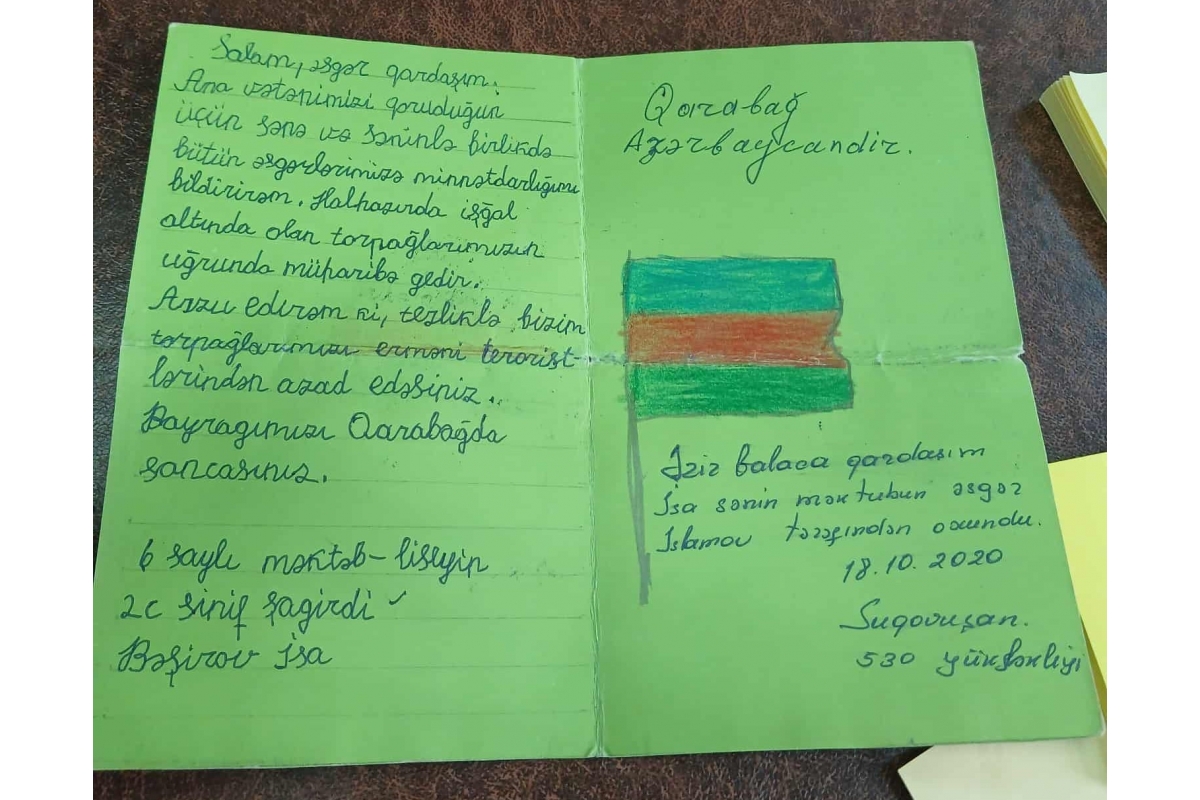 Salam, əsgər qardaşım.
Ana vətənimizi qoruduğun
üçün sənə və səninlə birlikdə
bütün əsgərlərimizə minnətdarlığımı
bildirirəm. Halhazırda işğal
altında olan torpağlarımızın
uğrunda müharibə gedir.
Arzu edirəm ki, tezliklə bizim
torpağlarımızı erməni terorist-
lərindən azad edəsiniz.
Bayragımızı Qarabağda
sancasınız.
6 saylı məktəb-liseyin
2c sinif şagirdi
Bəşirov İsa
Qarabağ
Azərbaycandir.
Əziz balaca qardaşım
İsa sənin məktubun əsgər
Islamov tərəfindən oxundu.
18.10.2020
Suqovuşan.
530 yüksəkliyi